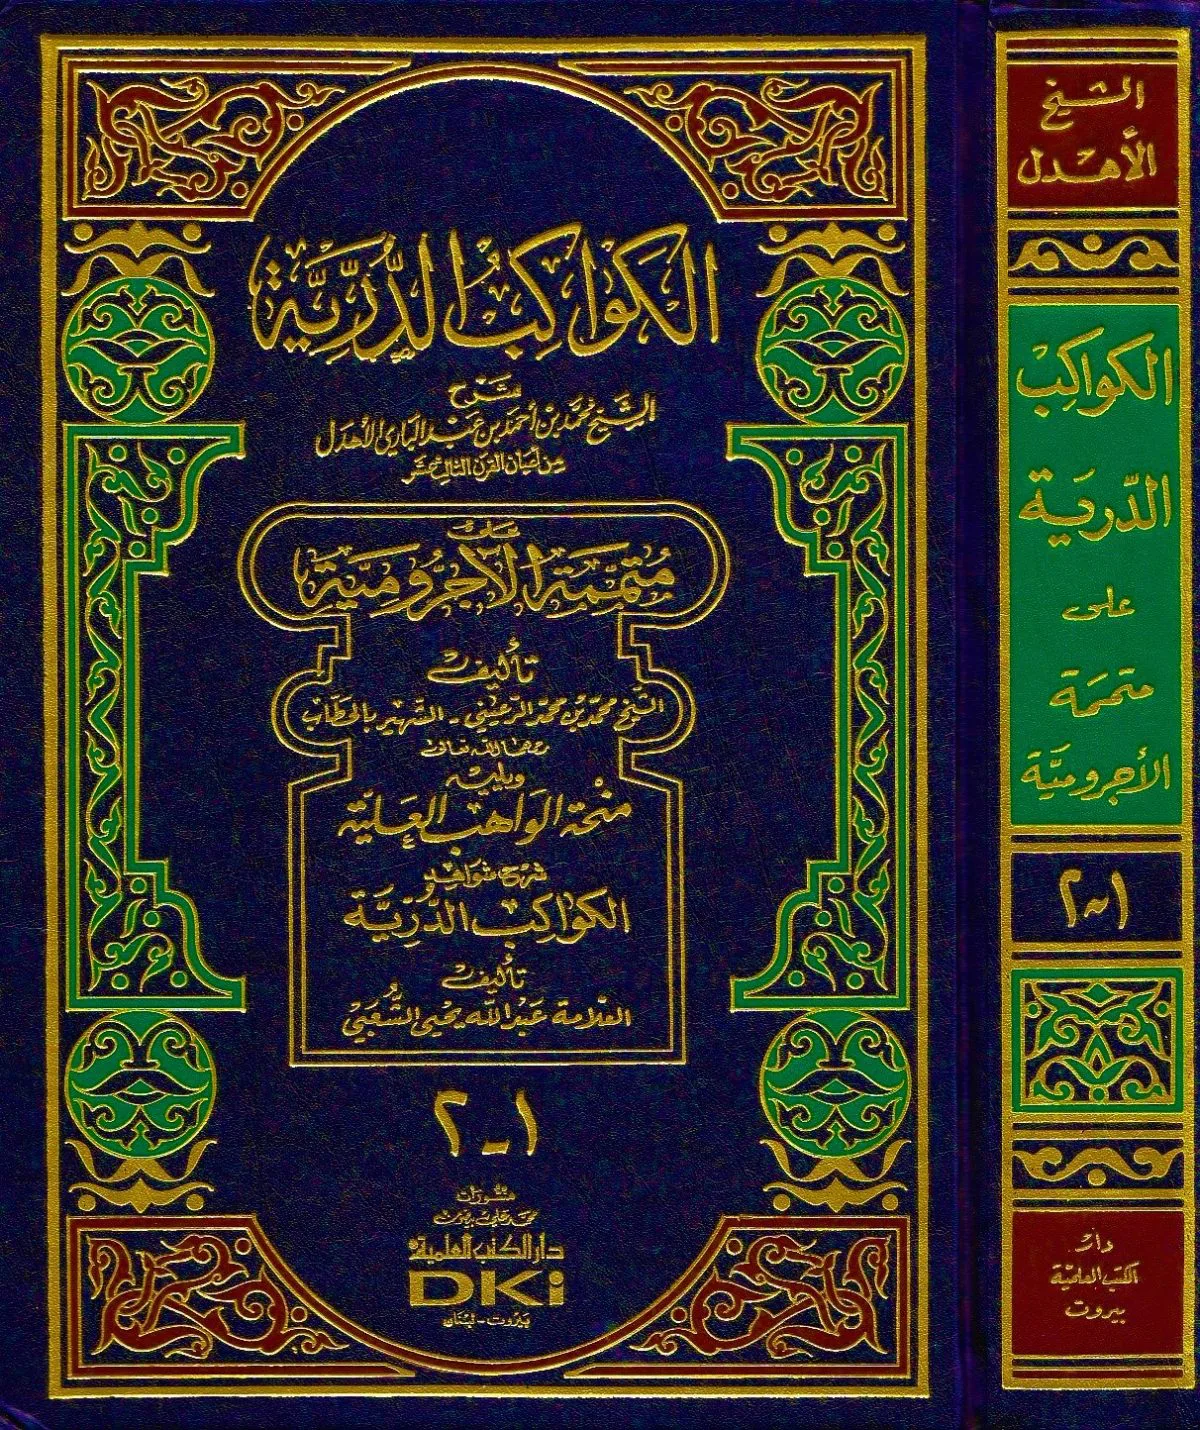 الكَواكِبُ الدُّرِّيَّة
شَرْح
الشَّيْخ مُحَمَّد بن أحمَد بن عَبْد الباري الأهدَل
مِن أعيان القرن الثالث عشر
عَلى
مُتمِّمَة الآجُرُّومِيَّة
تأليفْ
الشيخ محمّد بن محمّد الرّعيني - الشهير بالحطّاب
رحمهما الله تعالى
ويليه
منْحَة الوَاهب العَليّة
شرح شواهد
الكواكب الدُّرِّيَّة
تأليفْ
العلّامة عَبْد الله يحيى الشُّعَبي
١-٢
منشورات
محمد علي بيضون
دار الكتب العلمية
DKi
بيروت - لبنان
الشيخ
الأهدل
الكواكب
الدّرية
على
متممة
الأجروميَّة
١-٢
دار
الكتب العلمية
بيروت